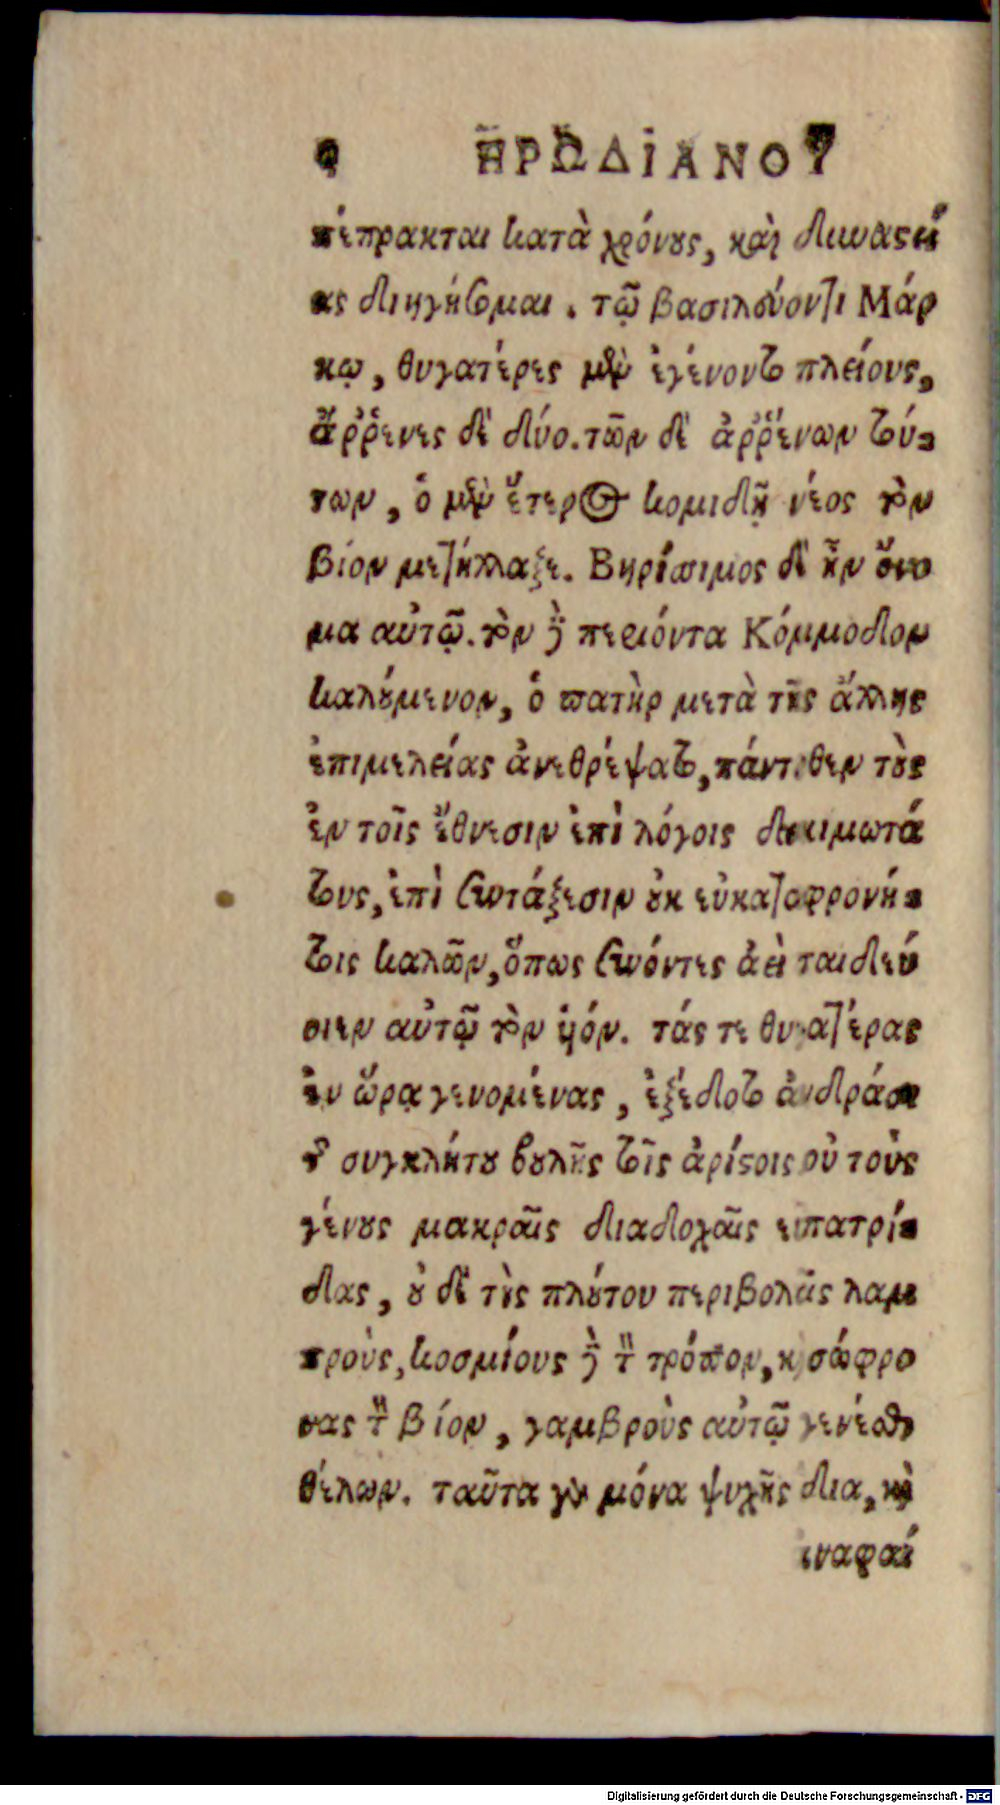 ἩΡΩΔΙΑΝΟΥ
πέπρακται κατὰ χρόνους, καὶ δυναστεί
ας διηγήσομαι. τῷ βασιλεύοντι Μάρ
κῳ, θυγατέρες μὲν ἐγένοντο πλείους,
ἄῤῥενες δὲ δύο. τῶν δὲ ἀῤῥένων τού-
των, ὁ μὲν ἕτερος κομιδῇ νέος τὸν
βίον μετήλλαξε. Βηρίσιμος δὲ ἦν ὄνο
μα αὐτῷ. τὸν δὲ περιόντα Κόμμοδον
καλούμενον, ὁ πατὴρ μετὰ τῆς ἄλλης
ἐπιμελείας ἀνεθρέψατο, πάντοθεν τοὺς
ἐν τοῖς ἔθνεσιν ἐπὶ λόγοις δοκιμωτά
τους, ἐπὶ συντάξεσιν οὐκ εὐκαταφρονή-
τοις καλῶν, ὅπως συνόντες ἀεὶ παιδεύ
οιεν αὐτῷ τὸν υἱόν. τάς τε θυγατέρας
ἐν ὥρᾳ γενομένας, ἐξέδοτο ἀνδράσι
τῆς συγκλήτου βουλῆς τοῖς ἀρίστοις οὐ τοὺς
γένους μακραῖς διαδοχαῖς εὐπατρί-
δας, οὐδὲ τὰς πλούτου περιβολὰς λαμ
προὺς, κοσμίους δὲ τὸν τρόπον, καὶ σώφρο
νας τὸν βίον, γαμβροὺς αὐτῷ γενέσθαι
θέλων. ταῦτα γὰρ μόνα ψυχῆς δια, καὶ
ἀναφαί
Digitalisierung gefördert durch die Deutsche Forschungsgemeinschaft - DFG